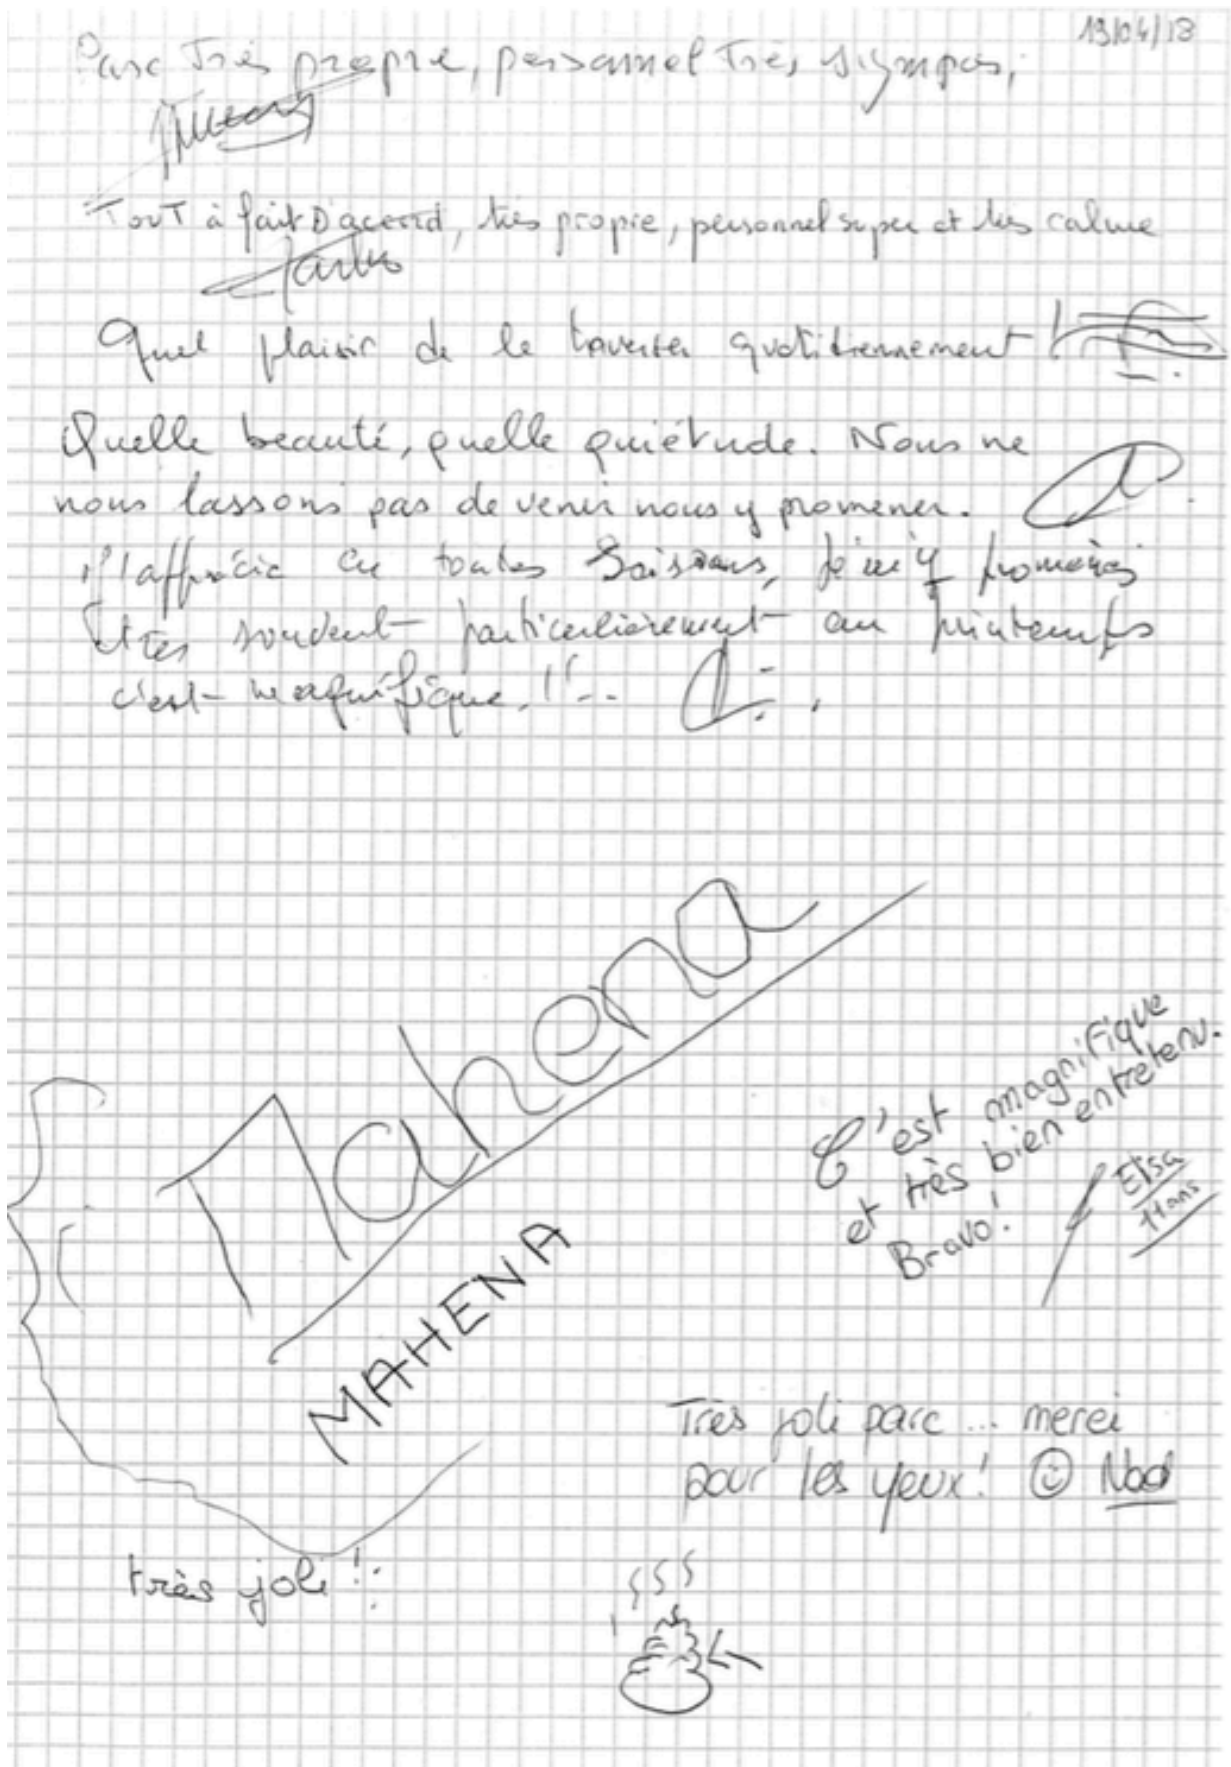 19/04/18
Parc Très propre, personnel Très sympas,
TouT à fait D'accord, très propre, personnel super et très calme
Quel plaisir de le traverser quotidiennement !
Quelle beauté, quelle quiétude. Nous ne
nous lassons pas de venir nous y promener.
J'apprécie en toutes Saisons, je m'y promènes
très souvent particulièrement au printemps
c'est magnifique !!..
Mahena
MAHENA
C'est magnifique
et très bien entretenu.
Bravo!
Elsa
11 ans
Très joli parc ... merci
pour les yeux! ☺ Nad
très joli !